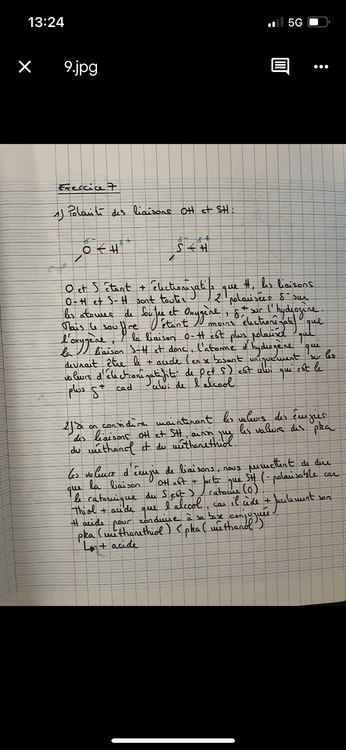 13:24
5G
9.jpg
Exercice 7
1) Polarité des liaisons OH et SH:
δ- δ+ δ- δ+
O ← H S ← H
O et S étant + électronégatifs que H, les liaisons
O-H et S-H sont toutes 2 polarisées δ- sur
les atomes de soufre et oxygène, δ+ sur l'hydrogène.
Mais le soufre étant moins électronégatif que
l'oxygène, la liaison O-H est plus polarisée que
la liaison S-H et donc, l'atome d'hydrogène qui
devrait être le + acide (en se basant uniquement sur les
valeurs d'électronégativité de O et S) est celui qui est le
plus δ+ cad celui de l'alcool
2) Si on considère maintenant les valeurs des énergies
des liaisons OH et SH, ainsi que les valeurs des pka
du méthanol et du méthanethiol.
Les valeurs d'énergie de liaisons, nous permettent de dire
que la liaison OH est + forte que SH (- polarisable car
le ratomique du S est > ratome (O)
Thiol + acide que l'alcool, car il cède + facilement son
H acide pour conduire à sa base conjuguée.
pka (méthanethiol) < pka (méthanol)
↳ + acide